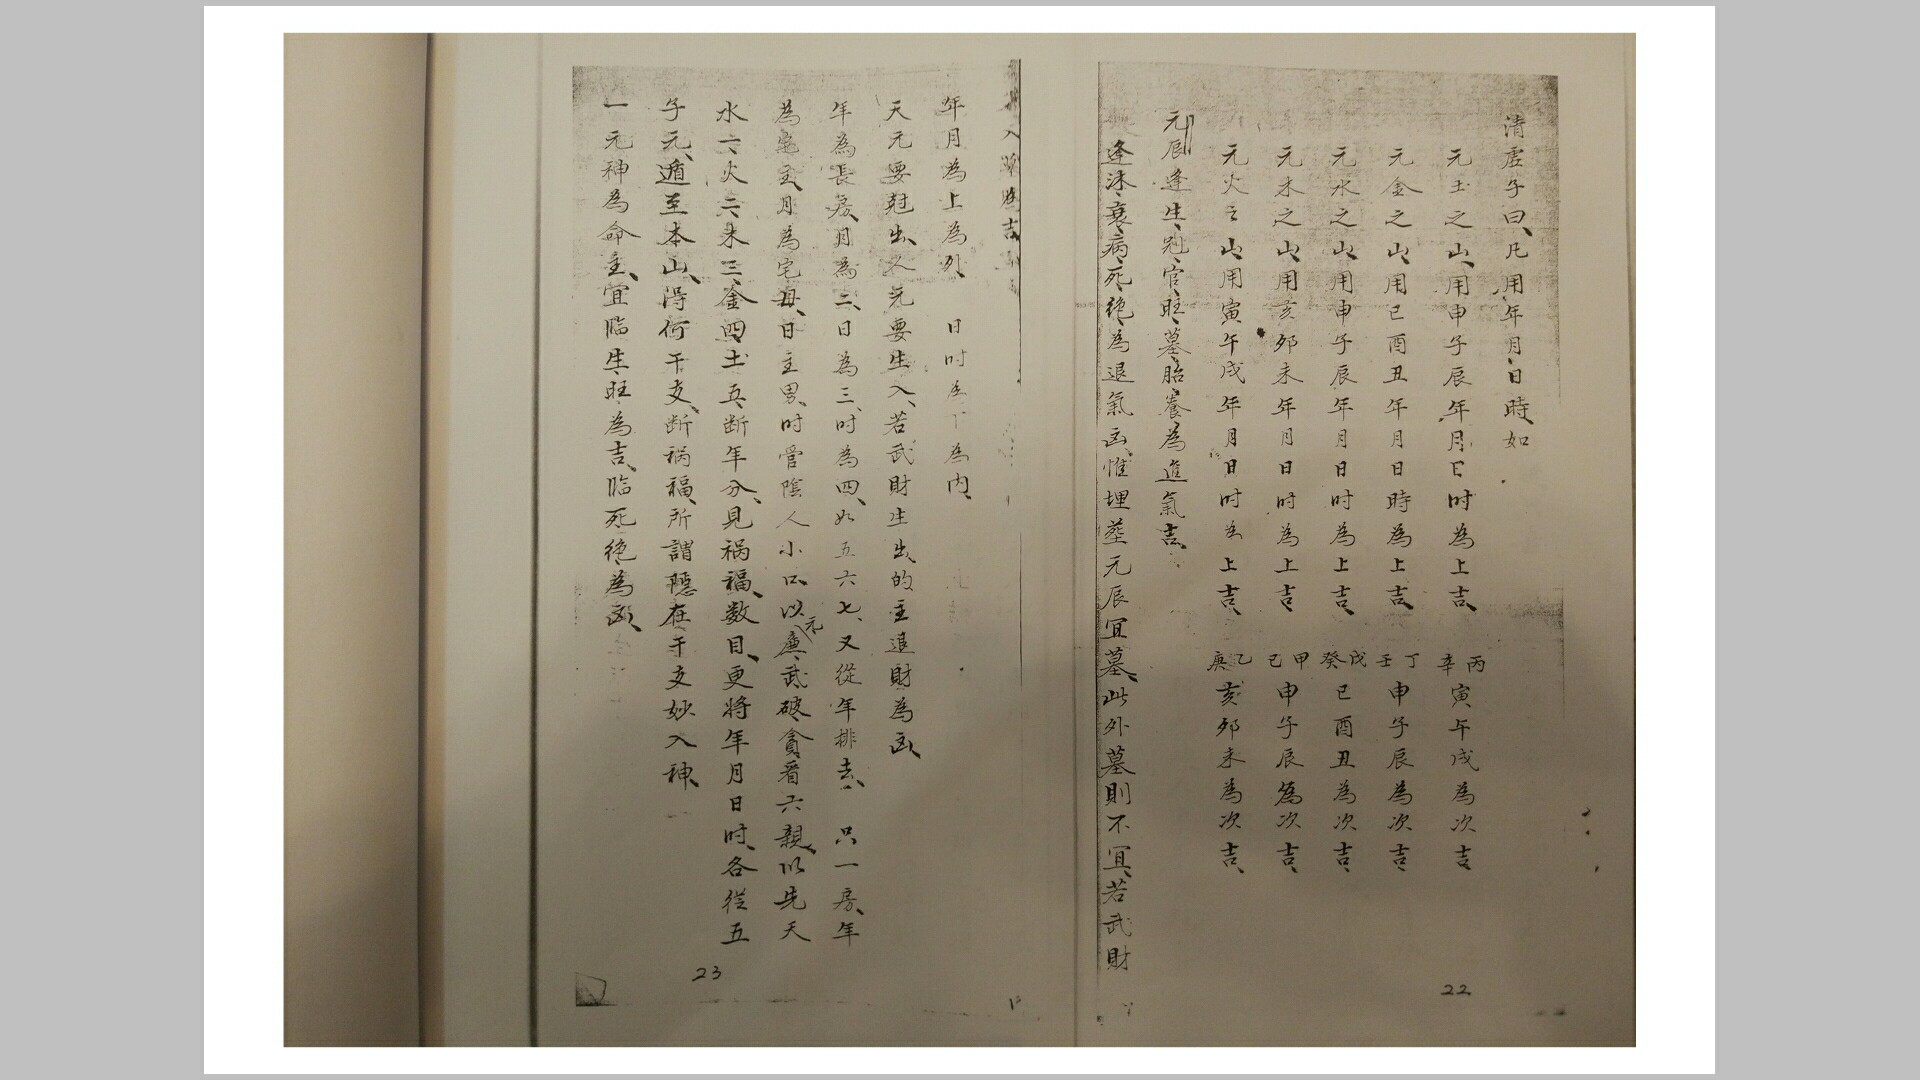 清虛子曰、凡用年月、日時如
元土之山、用申子辰年月日时為上吉、丙辛寅午戌為次吉
元金之山、用巳酉丑年月日時為上吉、丁壬申子辰為次吉、
元水之山、用申子辰年月日时為上吉、戊癸巳酉丑為次吉、
元木之山、用亥卯未年月日时為上吉、甲己申子辰為次吉、
元火之山、用寅午戌年月日时為上吉、乙庚亥卯未為次吉、
元辰逢生、冠、官、旺、墓、胎、養為進氣吉、
逢沐、衰、病、死、絶、為退氣凶、惟埋塟元辰宜墓、此外墓則不宜、若武財
22
入
吉
年月為上為外、日时為下為内、
天元要尅出、人元要生入、若武財生出的主退財為凶、
年為長房、月為二、日為三、时為四、如五六七、又從年排去、只一房、年
為宅主、月為宅母、日主男、时管陰人小口、以廉元武破貪看六親、以先天
水一、火二、木三、金四、土五、断年分、見禍福、数目、更将年月日时、各從五
子元、遁至本山、得何干支、断禍福、所謂隱在干支妙入神、
一元神為命主、宜臨生旺為吉、臨死絶為凶、
23